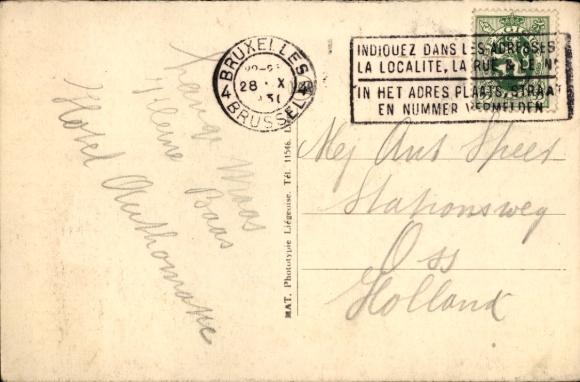 BRUXELLES
4 4
28 · X
31
BRUSSEL
INDIQUEZ DANS LES ADRESSES
LA LOCALITE, LA RUE & LE Nº
IN HET ADRES PLAATS, STRAAT
EN NUMMER VERMELDEN
Lange Maas
Kleine Baas
Hotel Authomatic
MAT. Phototypie Liégeoise. Tél. 11546.
Mej Ant Speet
Stationsweg
Oss
Holland